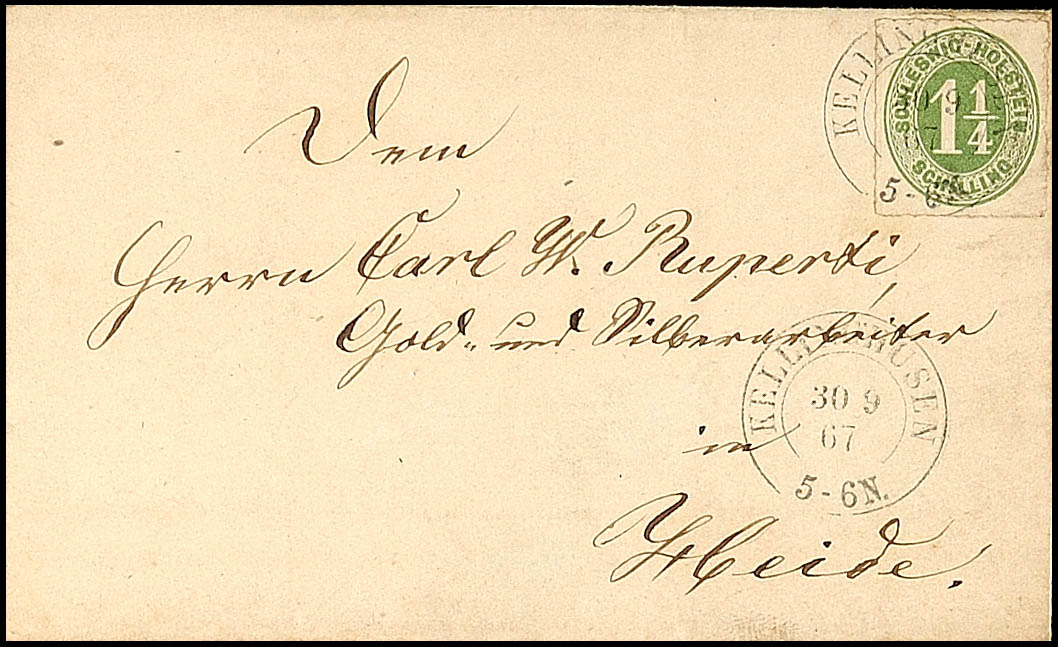 KELLIN
SCHLESWIG-HOLSTEIN
1 1/4
SCHILLING
5-6
Dem
Herrn Carl W. Ruperti,
Gold- und Silberarbeiter
in
Heide.
KELLINGHUSEN
30 9
67
5-6N.